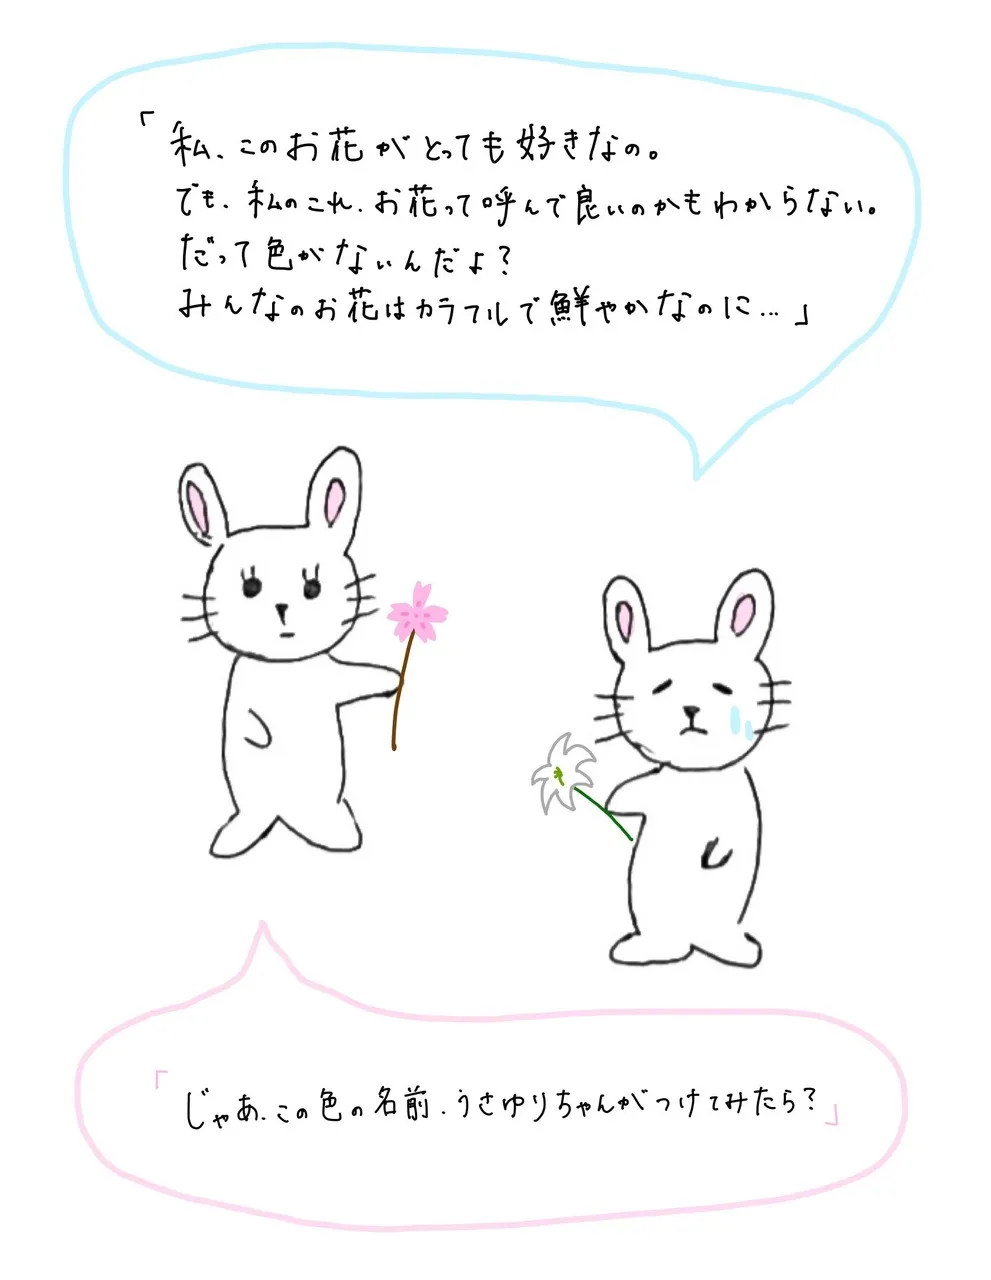 「私、このお花がとっても好きなの。
でも、私のこれ、お花って呼んで良いのかもわからない。
だって色がないんだよ？
みんなのお花はカラフルで鮮やかなのに…」
「じゃあ、この色の名前、うさゆりちゃんがつけてみたら？」